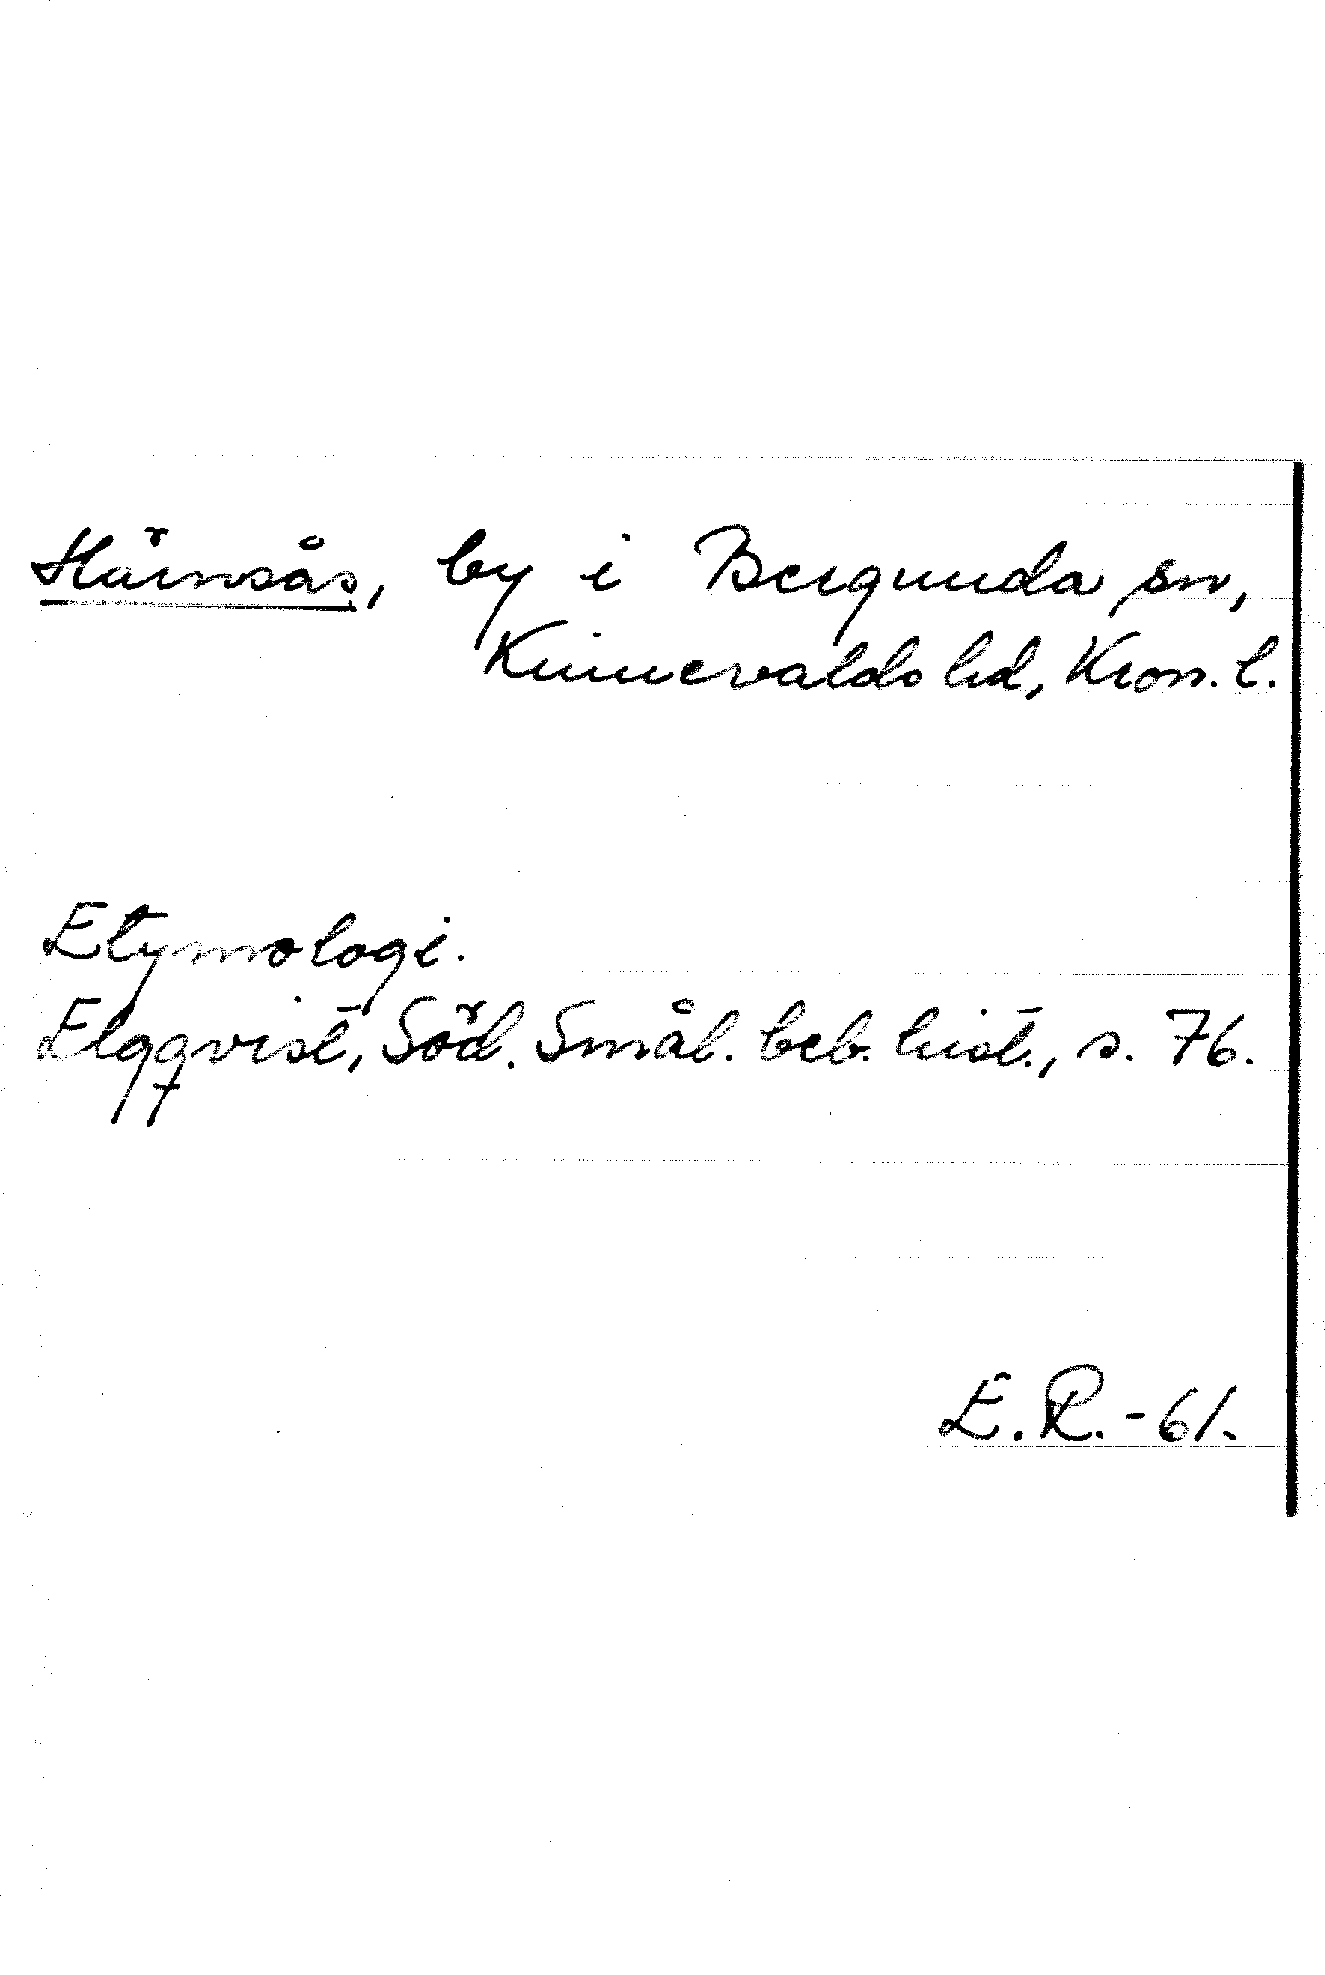 Härnsås, by i Bergunda sn,
Kinnevalds hd, Kron. l.
Etymologi.
Elgqvist, Söd. Smål. beb. hist., s. 76.
E. R. - 61.